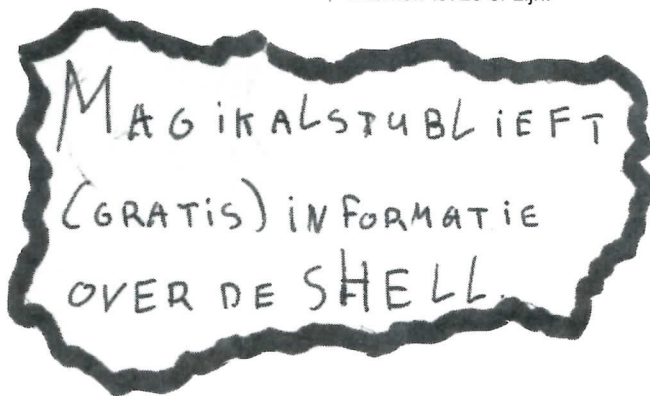 MAGIKALSTUBLIEFT
(GRATIS) INFORMATIE
OVER DE SHELL.